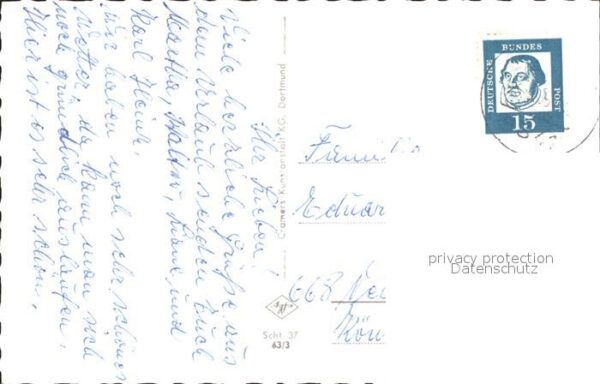 Ihr Lieben!
Viele herzliche Grüße aus
dem Urlaub senden Euch
Martha, Walter, und
Karl Heinz.
Wir haben noch sehr schönes
Wetter, da kann man sich
noch gründlich auslaufen.
Hier ist es sehr schön.
Cramers Kunstanstalt KG. Dortmund
Scht 37
63/3
DEUTSCHE
BUNDES
POST
15
Famili
Eduar
668 Neu
Kön
privacy protection
Datenschutz